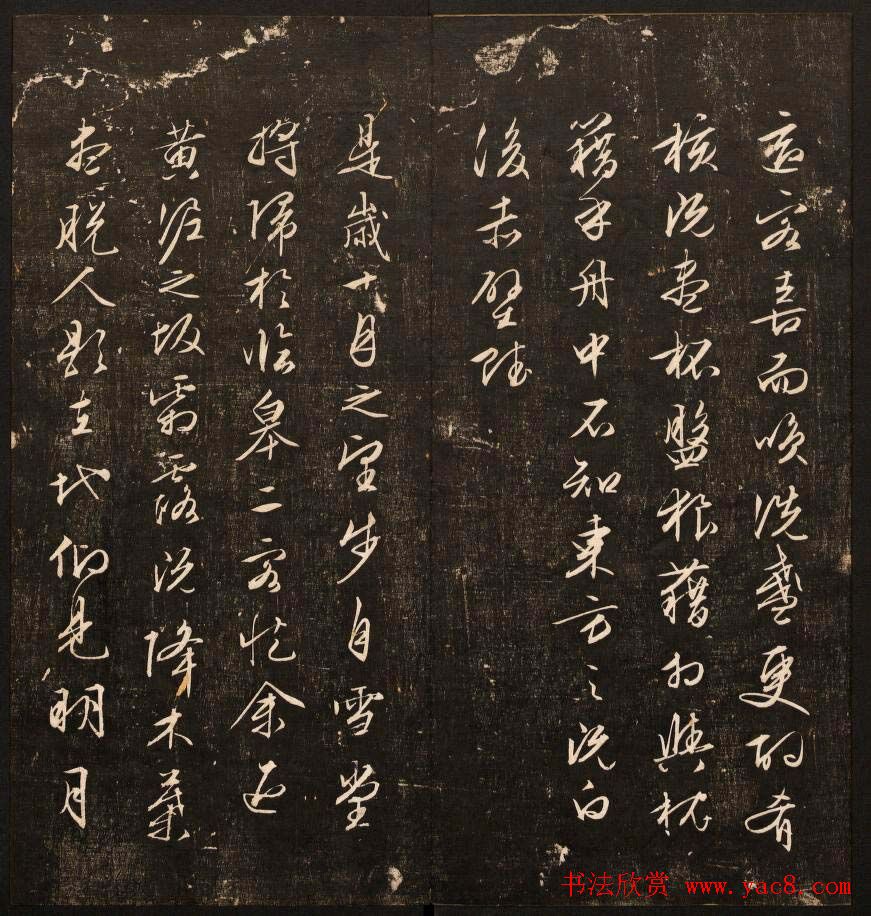 適客喜而咲洗盞更酌肴
核既盡杯盤狼藉相與枕
藉乎舟中不知東方之既白
後赤壁賦
是歲十月之望步自雪堂
將歸於臨皋二客從余過
黃泥之坂霜露既降木葉
盡脫人影在地仰見明月
书法欣赏 www.yac8.com